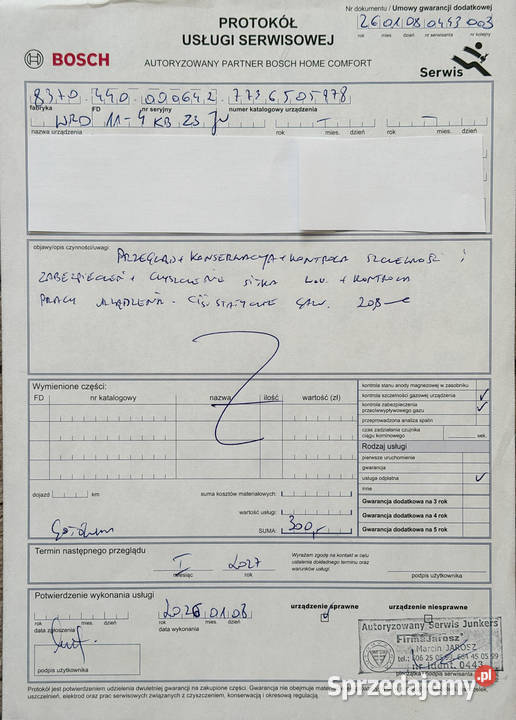 Nr dokumentu / Umowy gwarancji dodatkowej
PROTOKÓŁ
USŁUGI SERWISOWEJ
26 01 08 0443 003
rok mies. dzień nr serwisanta nr kolejny
BOSCH
AUTORYZOWANY PARTNER BOSCH HOME COMFORT
Serwis
8370 440 000642 7736505978
fabryka FD nr seryjny numer katalogowy urządzenia
WRD 11-4 KB 23
nazwa urządzenia rok mies. dzień rok mies. dzień
objawy/opis czynności/uwagi:
PRZEGLĄD + KONSERWACJA + KONTROLA SZCZELNOŚCI i
ZABEZPIECZEŃ + CZYSZCZENIE SITKA + KONTROLA
PRACY URZĄDZENIA - CIŚ. STATYCZNE GAZU
Wymienione części:
FD nr katalogowy nazwa ilość wartość (zł)
kontrola stanu anody magnezowej w zasobniku
kontrola szczelności gazowej urządzenia
kontrola zabezpieczenia
przeciwwypływowego gazu
przeprowadzona analiza spalin
czas zadziałania czujnika
ciągu kominowego sek.
Rodzaj usługi
pierwsze uruchomienie
gwarancja
usługa odpłatna
inne
Gwarancja dodatkowa na 3 rok
Gwarancja dodatkowa na 4 rok
Gwarancja dodatkowa na 5 rok
dojazd km
suma kosztów materiałowych:
wartość usługi:
SUMA: 300,-
Termin następnego przeglądu
I 2027
miesiąc rok
Wyrażam zgodę na kontakt w celu
ustalenia dokładnego terminu oraz
warunków usługi.
podpis użytkownika
Potwierdzenie wykonania usługi
2026 01 08
rok mies. dzień rok mies. dzień
data zgłoszenia data wykonania
urządzenie sprawne
urządzenie niesprawne
podpis użytkownika
Autoryzowany Serwis Junkers
Firma "Jarosz"
Marcin JAROSZ
nr ident. 0443
pieczątka i podpis serwisanta
Protokół jest potwierdzeniem udzielenia dwuletniej gwarancji na zakupione części. Gwarancja nie obejmuje
uszczelnień, elektrod oraz prac serwisowych związanych z czyszczeniem, konserwacją i okresową regulacją.
Sprzedajemy.pl